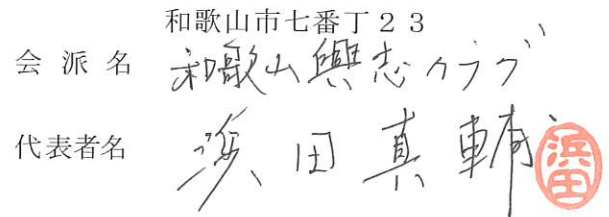 和歌山市七番丁23
会派名 和歌山興志クラブ
代表者名 浜田真輔 浜田